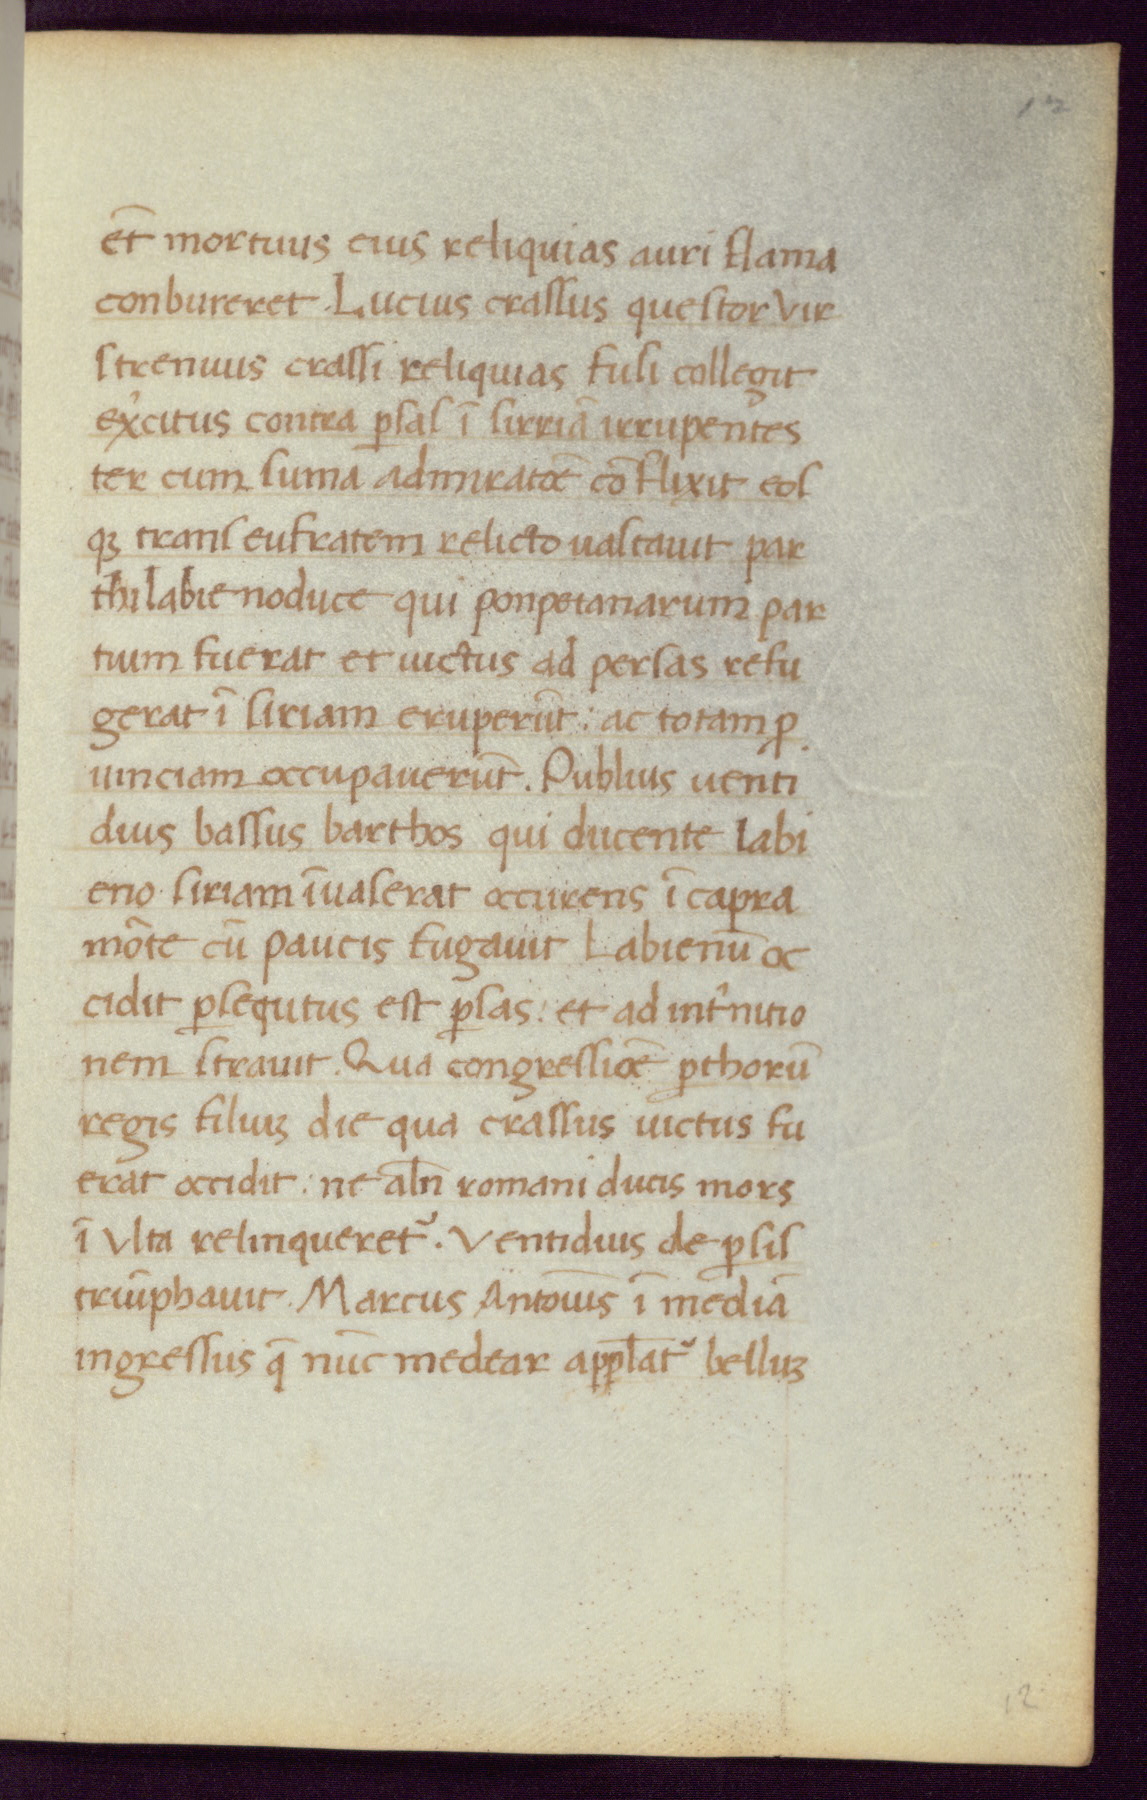 12
et̄ mortuus eius reliquias auri flama
conbureret. Lucius crassus questor vir
strenuus crassi reliquias fusi collegit
ex̓citus contra ꝑsas ī sirriā irrupentes
ter cum suma admiratōe cōflixit eos
qꝫ trans eufratem relicto uastauit par
thi labieno duce qui ponpetanarum par
tium fuerat et uictus ad persas refu
gerat ī siriam eruperūt: ac totam ꝓ
uinciam occupauerūt. Publius uenti
dius bassus barthos qui ducente labi
eno siriam īuaserat occurens ī capra
mōte cū paucis fugauit Labienū oc
cidit ꝑsequtus est ꝑsas: et ad int̓nitio
nem strauit. Qua congressiōe ꝑthorū
regis filiuꝫ die qua crassus uictus fu
erat occidit: ne al̄n romani ducis mors
ī ulta relinqueret᷑. Ventidius de ꝑsis
triūphauit. Marcus Antoīus ī mediā
ingressus q̄ nūc medear appl̄lat᷑ belluꝫ
12